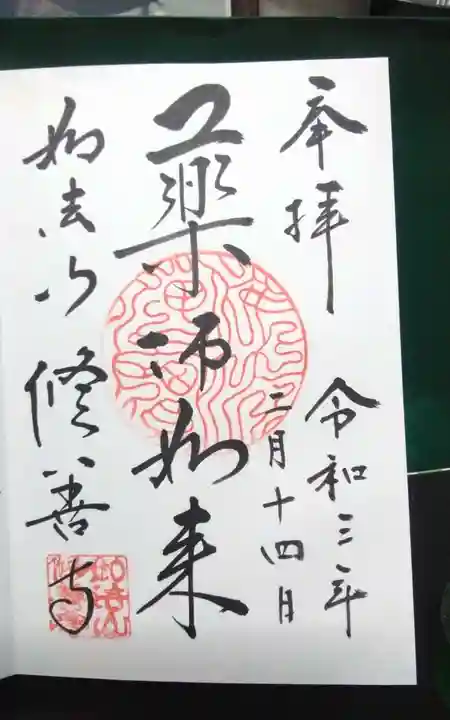 奉拝
令和三年
二月十四日
薬師如来
如法山 修善寺